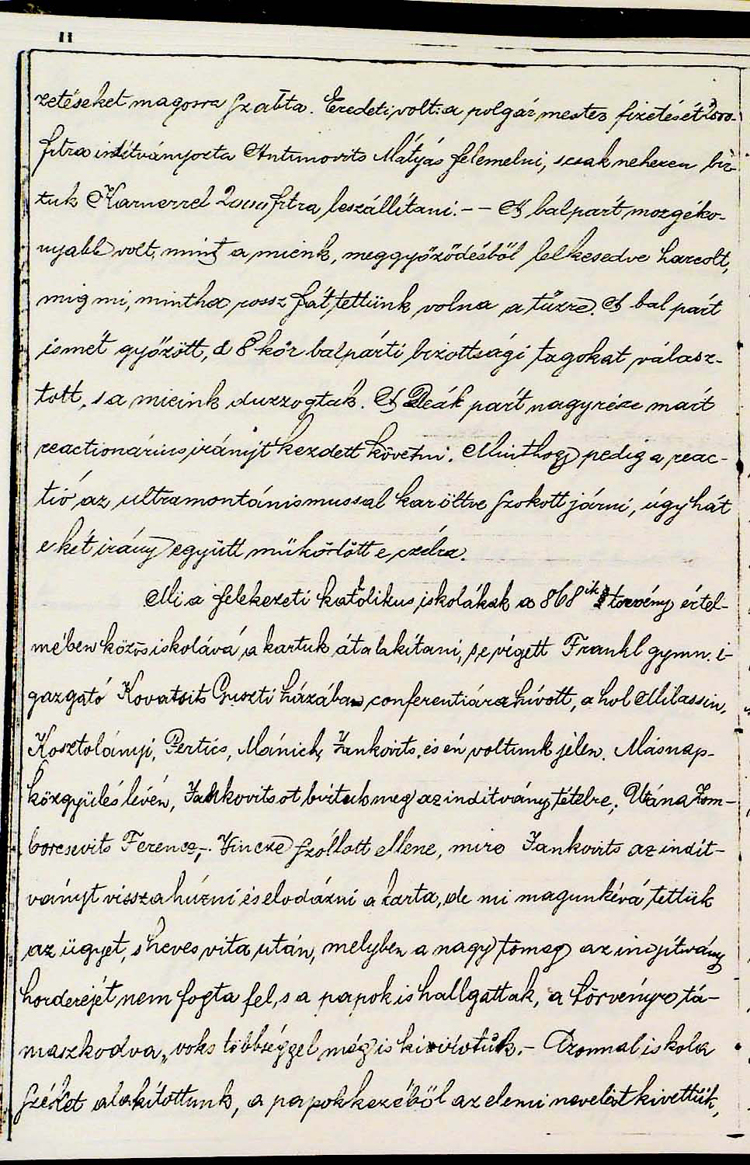 11
zetéseket magosra szabta. Eredeti volt: a polgármester fizetését
frtra indítványozta Antunovits Mátyás felemelni, s csak nehezen bír-
tuk Karnerrel 2000 frtra leszállítani. – – A balpárt mozgéko-
nyabb volt, mint a mienk, meggyőződésből lelkesedve harcolt,
mig mi, mintha rossz fát tettünk volna a tűzre. A bal párt
ismét győzött, s 8 kör balpárti bizottsági tagokat válasz-
tott, s a mieink duzzogtak. A Deák párt nagyrésze már
reactionárius irányt kezdett követni. Minthogy pedig a reac-
tió az ultramontánismussal karöltve szokott járni, úgy hát
e két irány együtt működött e czélra.
Mi a felekezeti katolikus iskolákak a 868ik törvény értel-
mében közös iskolává akartuk átalakítani, s e végett Frankl gymn. i-
gazgató Kovatsits Guszti házában conferentiára hívott, a hol Milassin,
Kosztolányi, Pertics, Mánich, Jankovits, és én voltunk jelen. Másnap
közgyülés lévén, Jankovitsot bíztuk meg az indítvány tételre; Utána Zom-
borcsevits Ferencz, – Vincze szóllott ellene, mire Jankovits az indít-
ványt vissza húzni és elodázni akarta, de mi magunkévá tettük
az ügyet, s heves vita után, melyben a nagy tömeg az indítvány
horderejét nem fogta fel, s a papok is hallgattak, a törvényre tá-
maszkodva, voks többséggel mégis kivívtuk. – Azonnal iskola
széket alakítottunk, a papok kezéből az elemi nevelést kivettük,